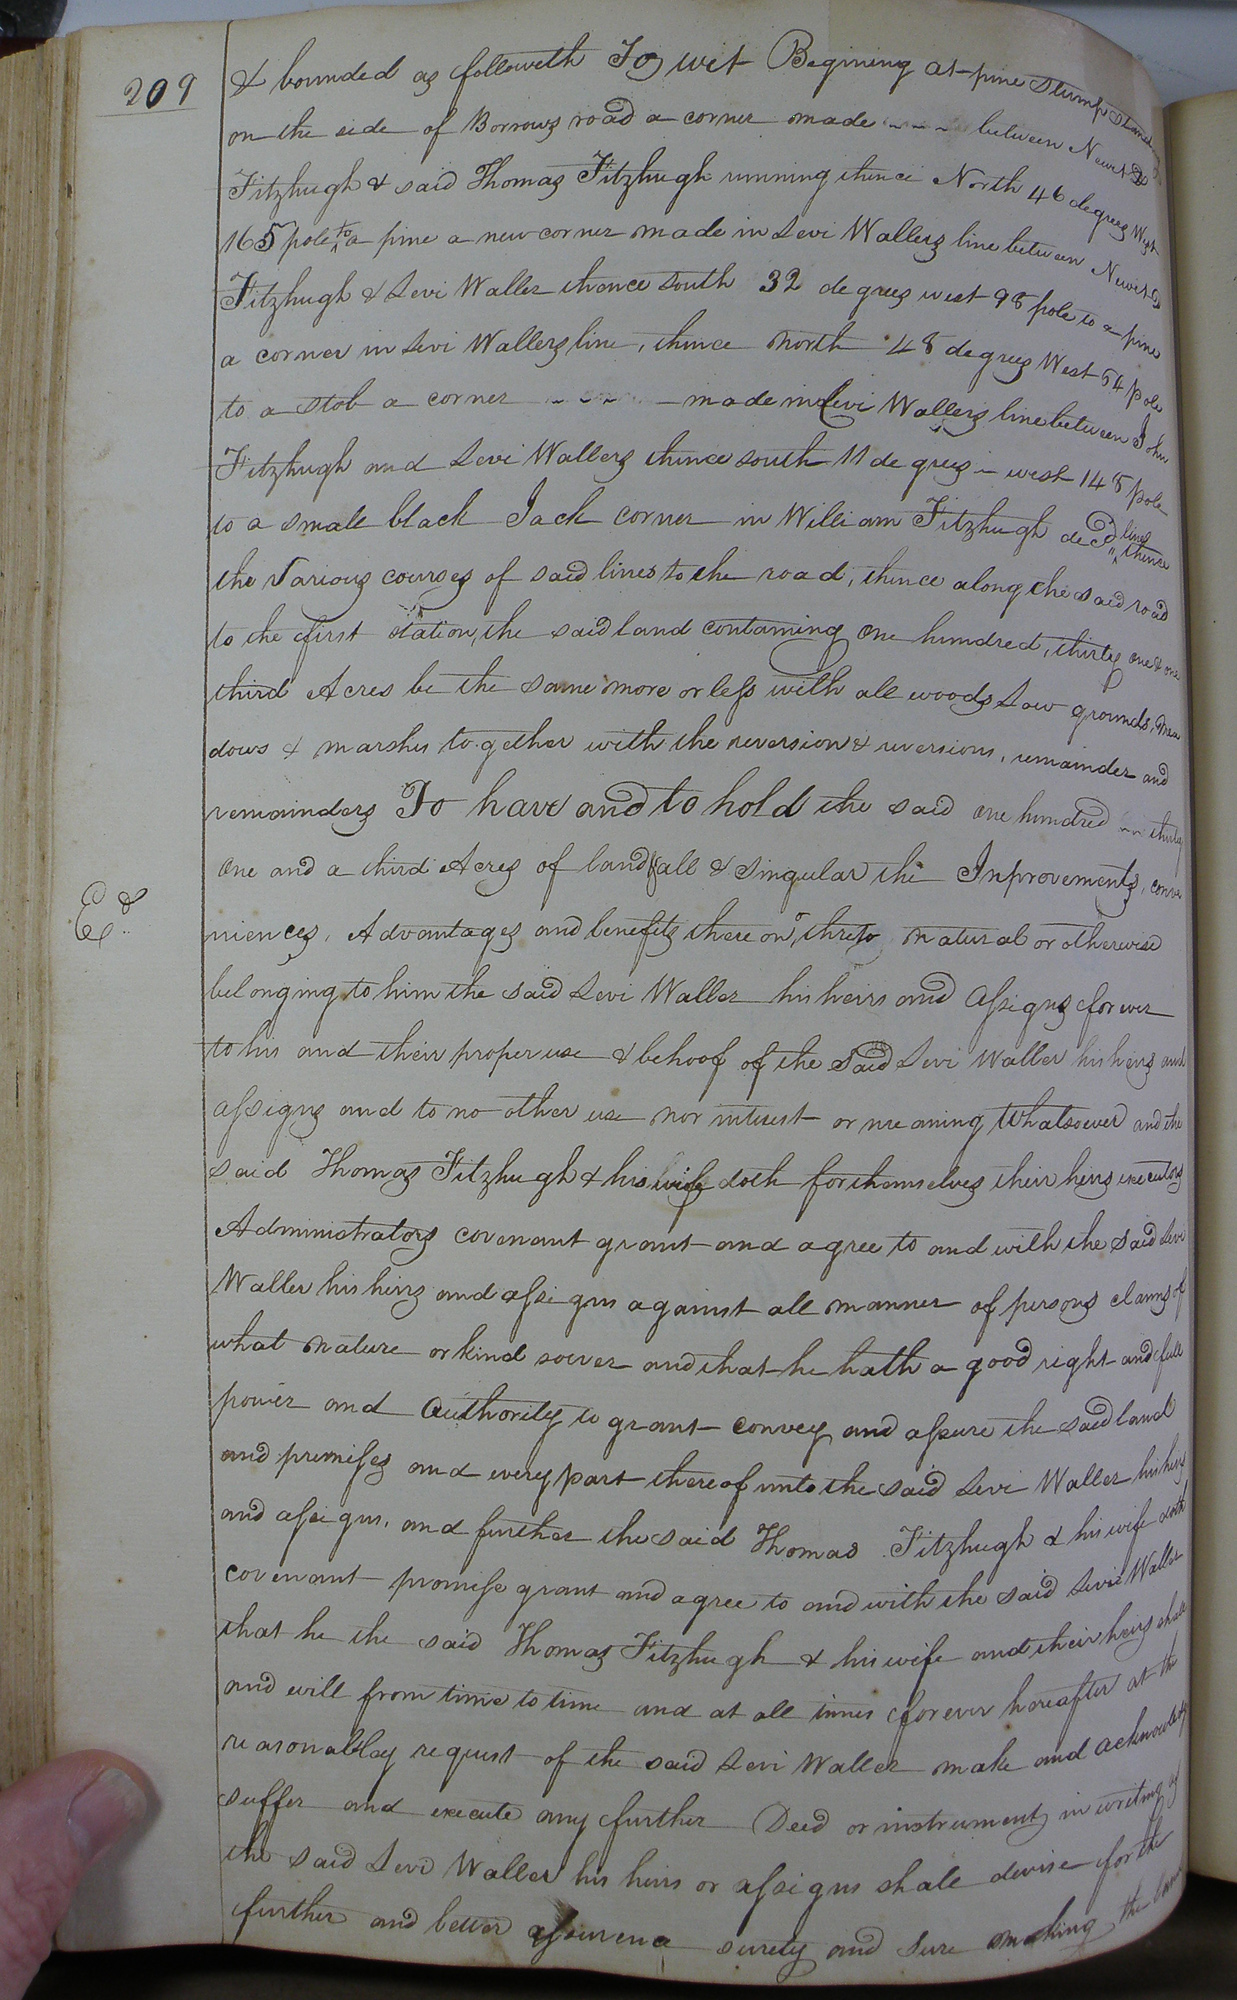 209
& bounded as followeth To wit Begining at pine stump
on the side of Borrows road a corner made - - - between Newit D
Fitzhugh & said Thomas Fitzhugh running thence North 46 degrees West
165 pole to a pine a new corner made in Levi Wallers line between Newit D
Fitzhugh & Levi Waller thence south 32 degrees west 98 pole to a pine
a corner in Levi Wallers line, thence North 48 degrees West 54 pole
to a stob a corner - - - - made in Levi Wallers line between John
Fitzhugh and Levi Wallers thence south 11 degrees - west 148 pole
to a small black Jack corner in William Fitzhugh decd lines thence
the various courses of said lines to the road, thence along the said road
to the first station, the said land containing one hundred, thirty one & one
third Acres be the same more or less with all woods Low grounds, Mea
dows & marshes together with the reversion & reversions, remainder and
remainders To have and to hold the said one hundred -- thirty
one and a third Acres of land & all & singular the Inprovements, conve
Ed
niences, Advantages and benefits there on, thereto natural or otherwise
belonging to him the said Levi Waller his heirs and Assigns forever
to his and their proper use & behoof of the said Levi Waller his heirs and
assigns and to no other use nor interest or meaning whatsoever and the
said Thomas Fitzhugh & his wife doth for themselves their heirs executors
Administrators covenant grant and agree to and with the said Levi
Waller his heirs and assigns against all manner of persons claims of
what nature or kind soever and that he hath a good right and full
power and Authority to grant convey and assure the said land
and premises and every part thereof unto the said Levi Waller his heirs
and assigns, and further the said Thomas Fitzhugh & his wife doth
covenant promise grant and agree to and with the said Levi Waller
that he the said Thomas Fitzhugh & his wife and their heirs shall
and will from time to time and at all times forever hereafter at the
reasonablay request of the said Levi Waller make and acknowledge
suffer and execute any further Deed or instrument in writing as
the said Levi Waller his heirs or assigns shall devise for the
further and better assurence surety and sure making the